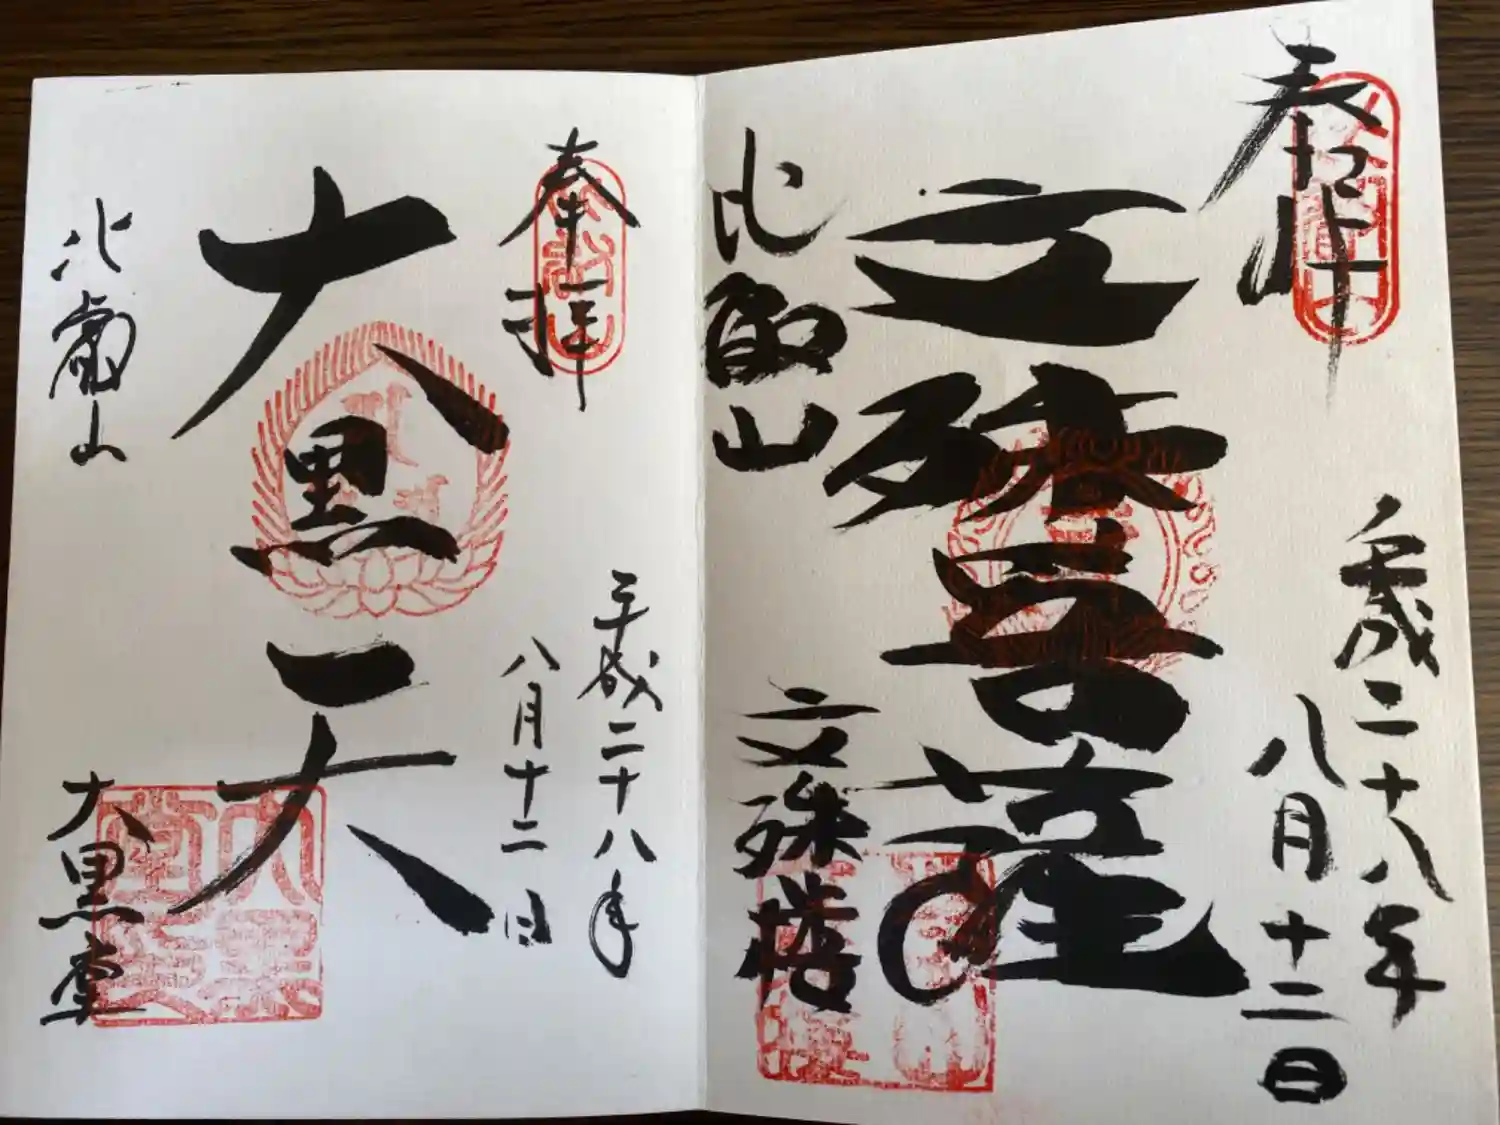 奉拝
平成二十八年
八月十二日
文殊菩薩
比叡山
文殊楼
奉拝
平成二十八年
八月十二日
大黒天
比叡山
大黒堂